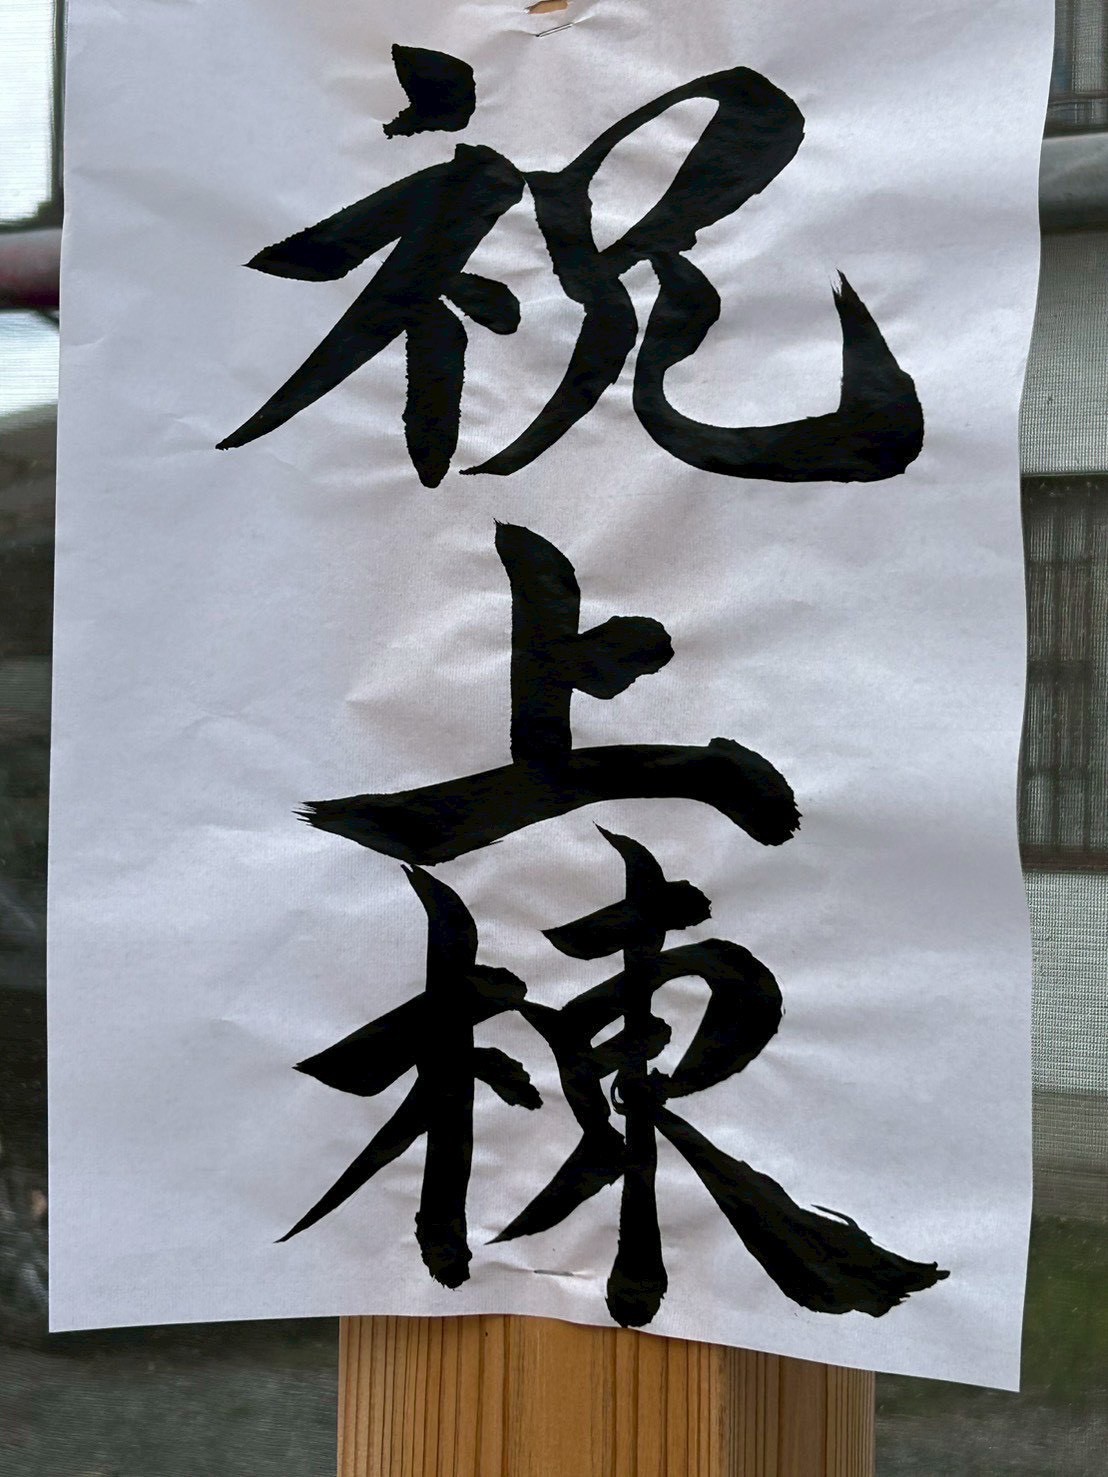 祝上棟